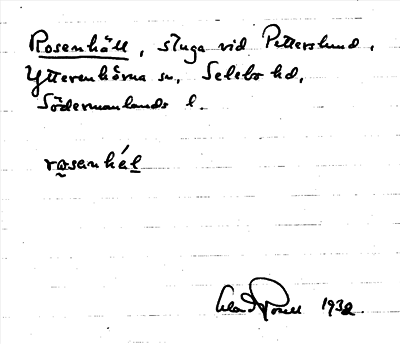 Rosenhäll, stuga vid Petterslund,
Ytterenhörna sn, Selebo hd,
Södermanlands l.
rosenhál
1932